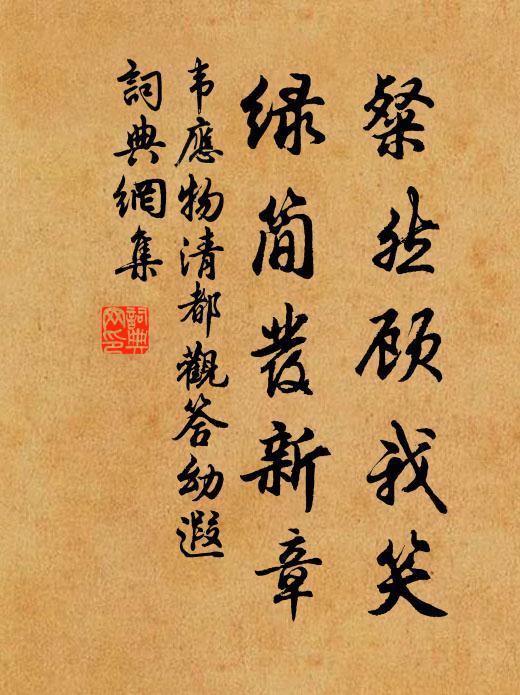 粲然顾我笑
绿简發新章
韦應物清都觀答幼遐
詞典網集
詞典网印